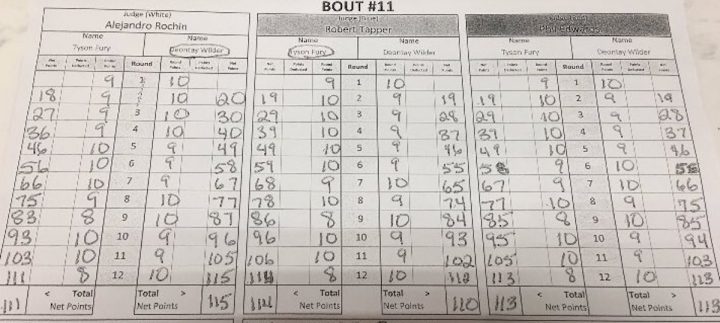 BOUT #11
Judge (White) Judge (Blue)
Alejandro Rochin Robert Tapper Phil Edwards
Name Name Name Name Name Name
Tyson Fury Deontay Wilder Tyson Fury Deontay Wilder Tyson Fury Deontay Wilder
Round Round
9 1 10 9 1 10 9 1 10
18 9 10 20 19 10 2 9 19 19 10 2 9 19
27 9 3 10 30 29 10 3 9 28 29 10 3 9 28
36 9 4 10 40 39 10 4 9 37 39 10 4 9 37
46 10 5 9 49 49 10 5 9 46 49 10 5 9 46
56 10 6 9 58 59 10 6 9 55 58 9 6 10 56
66 10 7 9 67 68 9 7 10 65 67 9 7 10 66
75 9 8 10 77 78 10 8 9 74 77 10 8 9 75
83 8 9 10 87 86 8 9 10 84 85 8 9 10 85
93 10 10 9 96 96 10 10 9 93 95 10 10 9 94
103 10 11 9 105 106 10 11 9 102 105 10 11 9 103
111 8 12 10 115 114 8 12 10 112 113 8 12 10 113
< Total Total > < Total Total > < Total Total >
111 Net Points Net Points 115 114 Net Points Net Points 110 113 Net Points Net Points 113